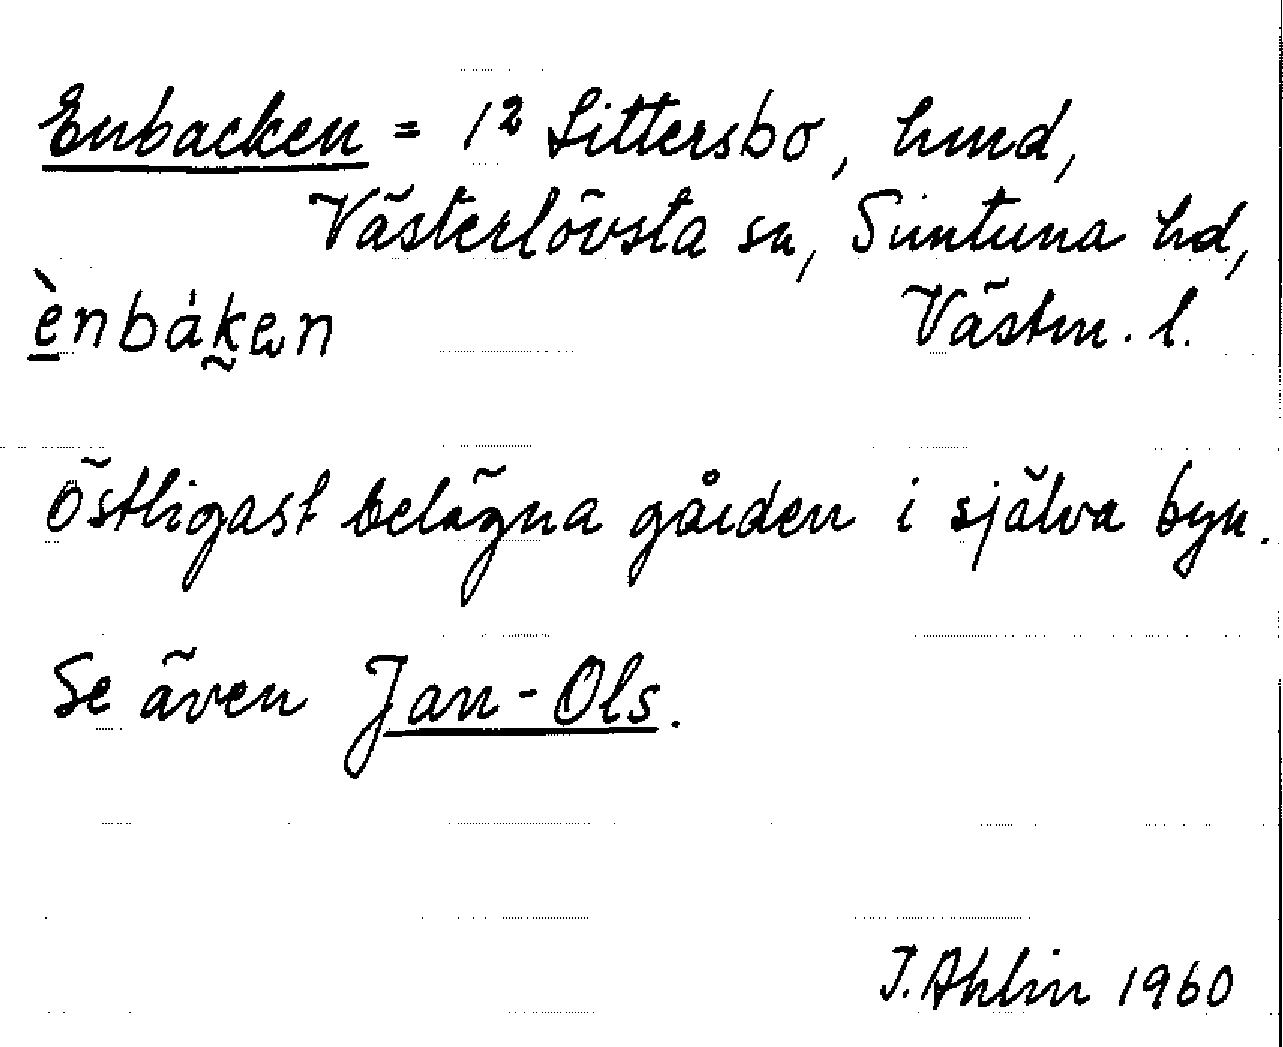 Enbacken = 1² Sittersbo, hmd,
Västerlövsta sn, Simtuna hd,
ènbáken Västm. l.
Östligast belägna gården i själva byn.
Se även Jan-Ols.
J. Ahlin 1960